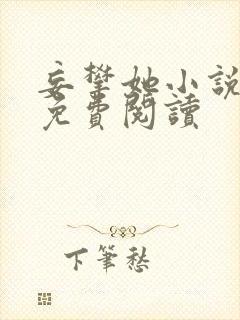 妄攀她小說
免費閱讀
下筆愁